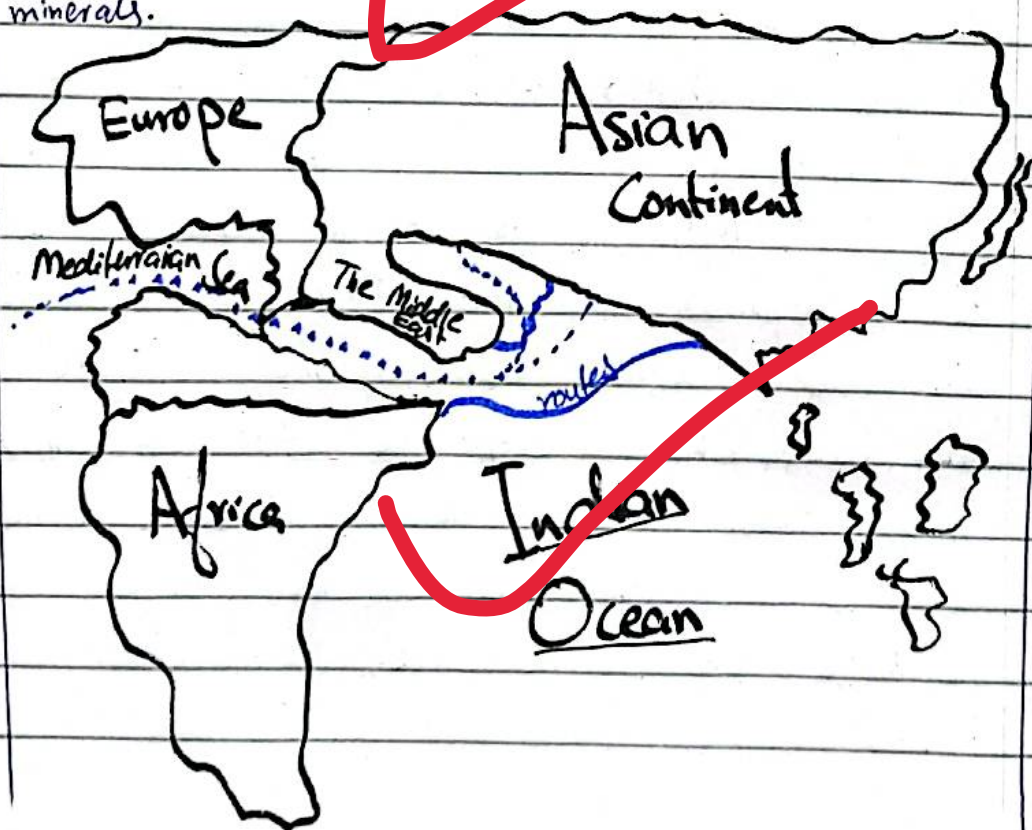 minerals.
Europe
Asian
Continent
Mediterraian Sea
The Middle
East
routes
Africa
Indian
Ocean